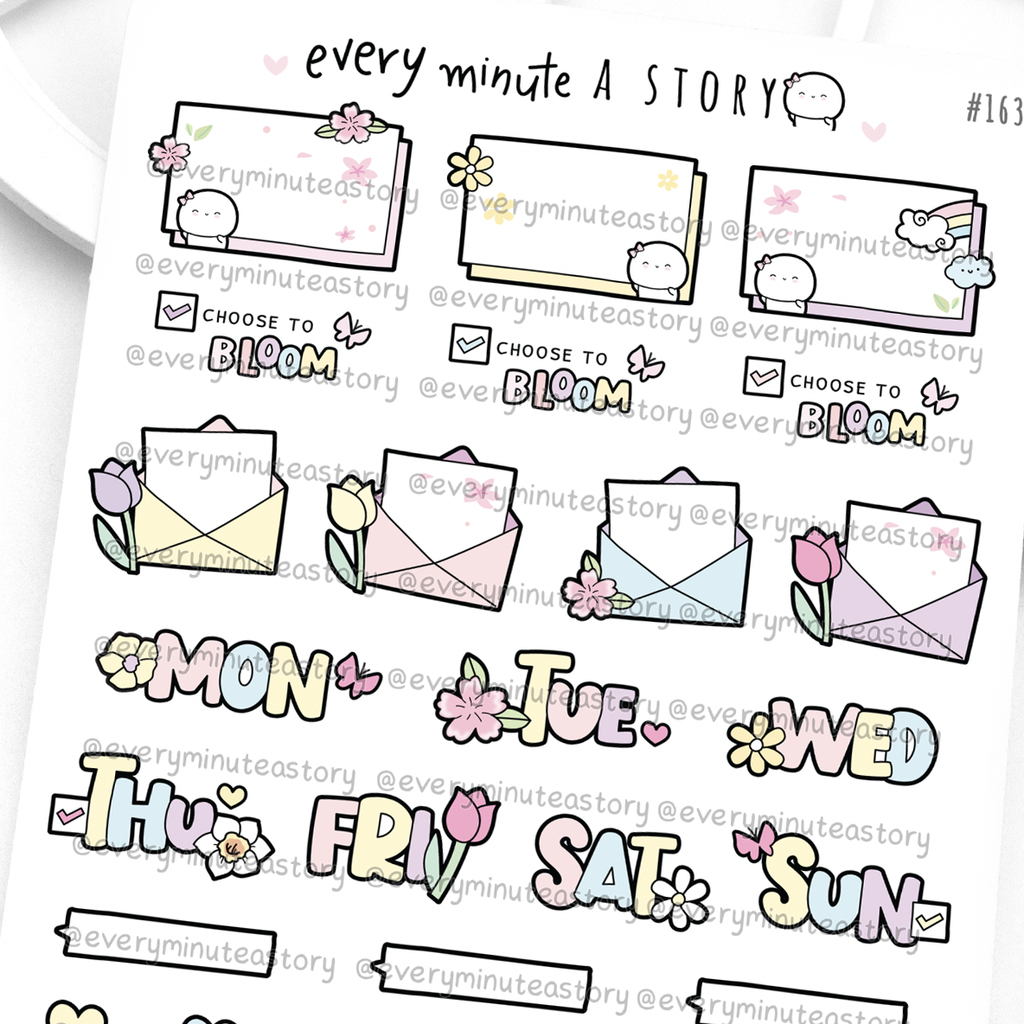 every minute A STORY
#163
@everyminuteastory @everyminuteastory @everyminuteastory
@everyminuteastory @everyminuteastory @everyminuteastory
CHOOSE TO BLOOM
CHOOSE TO BLOOM
CHOOSE TO BLOOM
@everyminuteastory @everyminuteastory @everyminuteastory
@everyminuteastory @everyminuteastory @everyminuteastory
@everyminuteastory @everyminuteastory @everyminuteastory
MON TUE WED
@everyminuteastory @everyminuteastory @everyminuteastory
@everyminuteastory @everyminuteastory @everyminuteastory
THU FRI SAT SUN
@everyminuteastory @everyminuteastory @everyminuteastory
@everyminuteastory @everyminuteastory @everyminuteastory